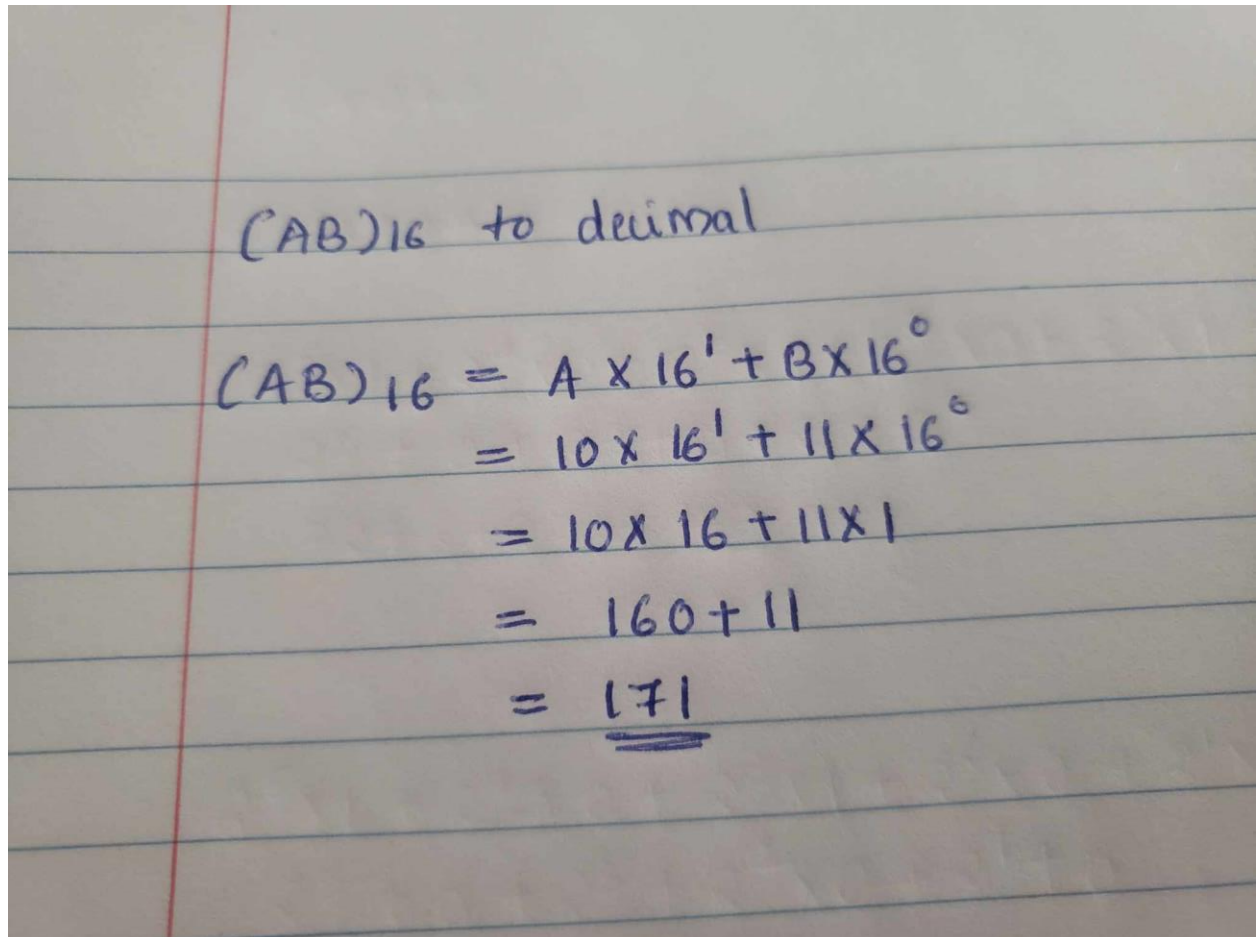 (AB)16 to decimal
(AB)16 = A X 16¹ + B X 16⁰
= 10 X 16¹ + 11 X 16⁰
= 10 X 16 + 11 X 1
= 160 + 11
= 171